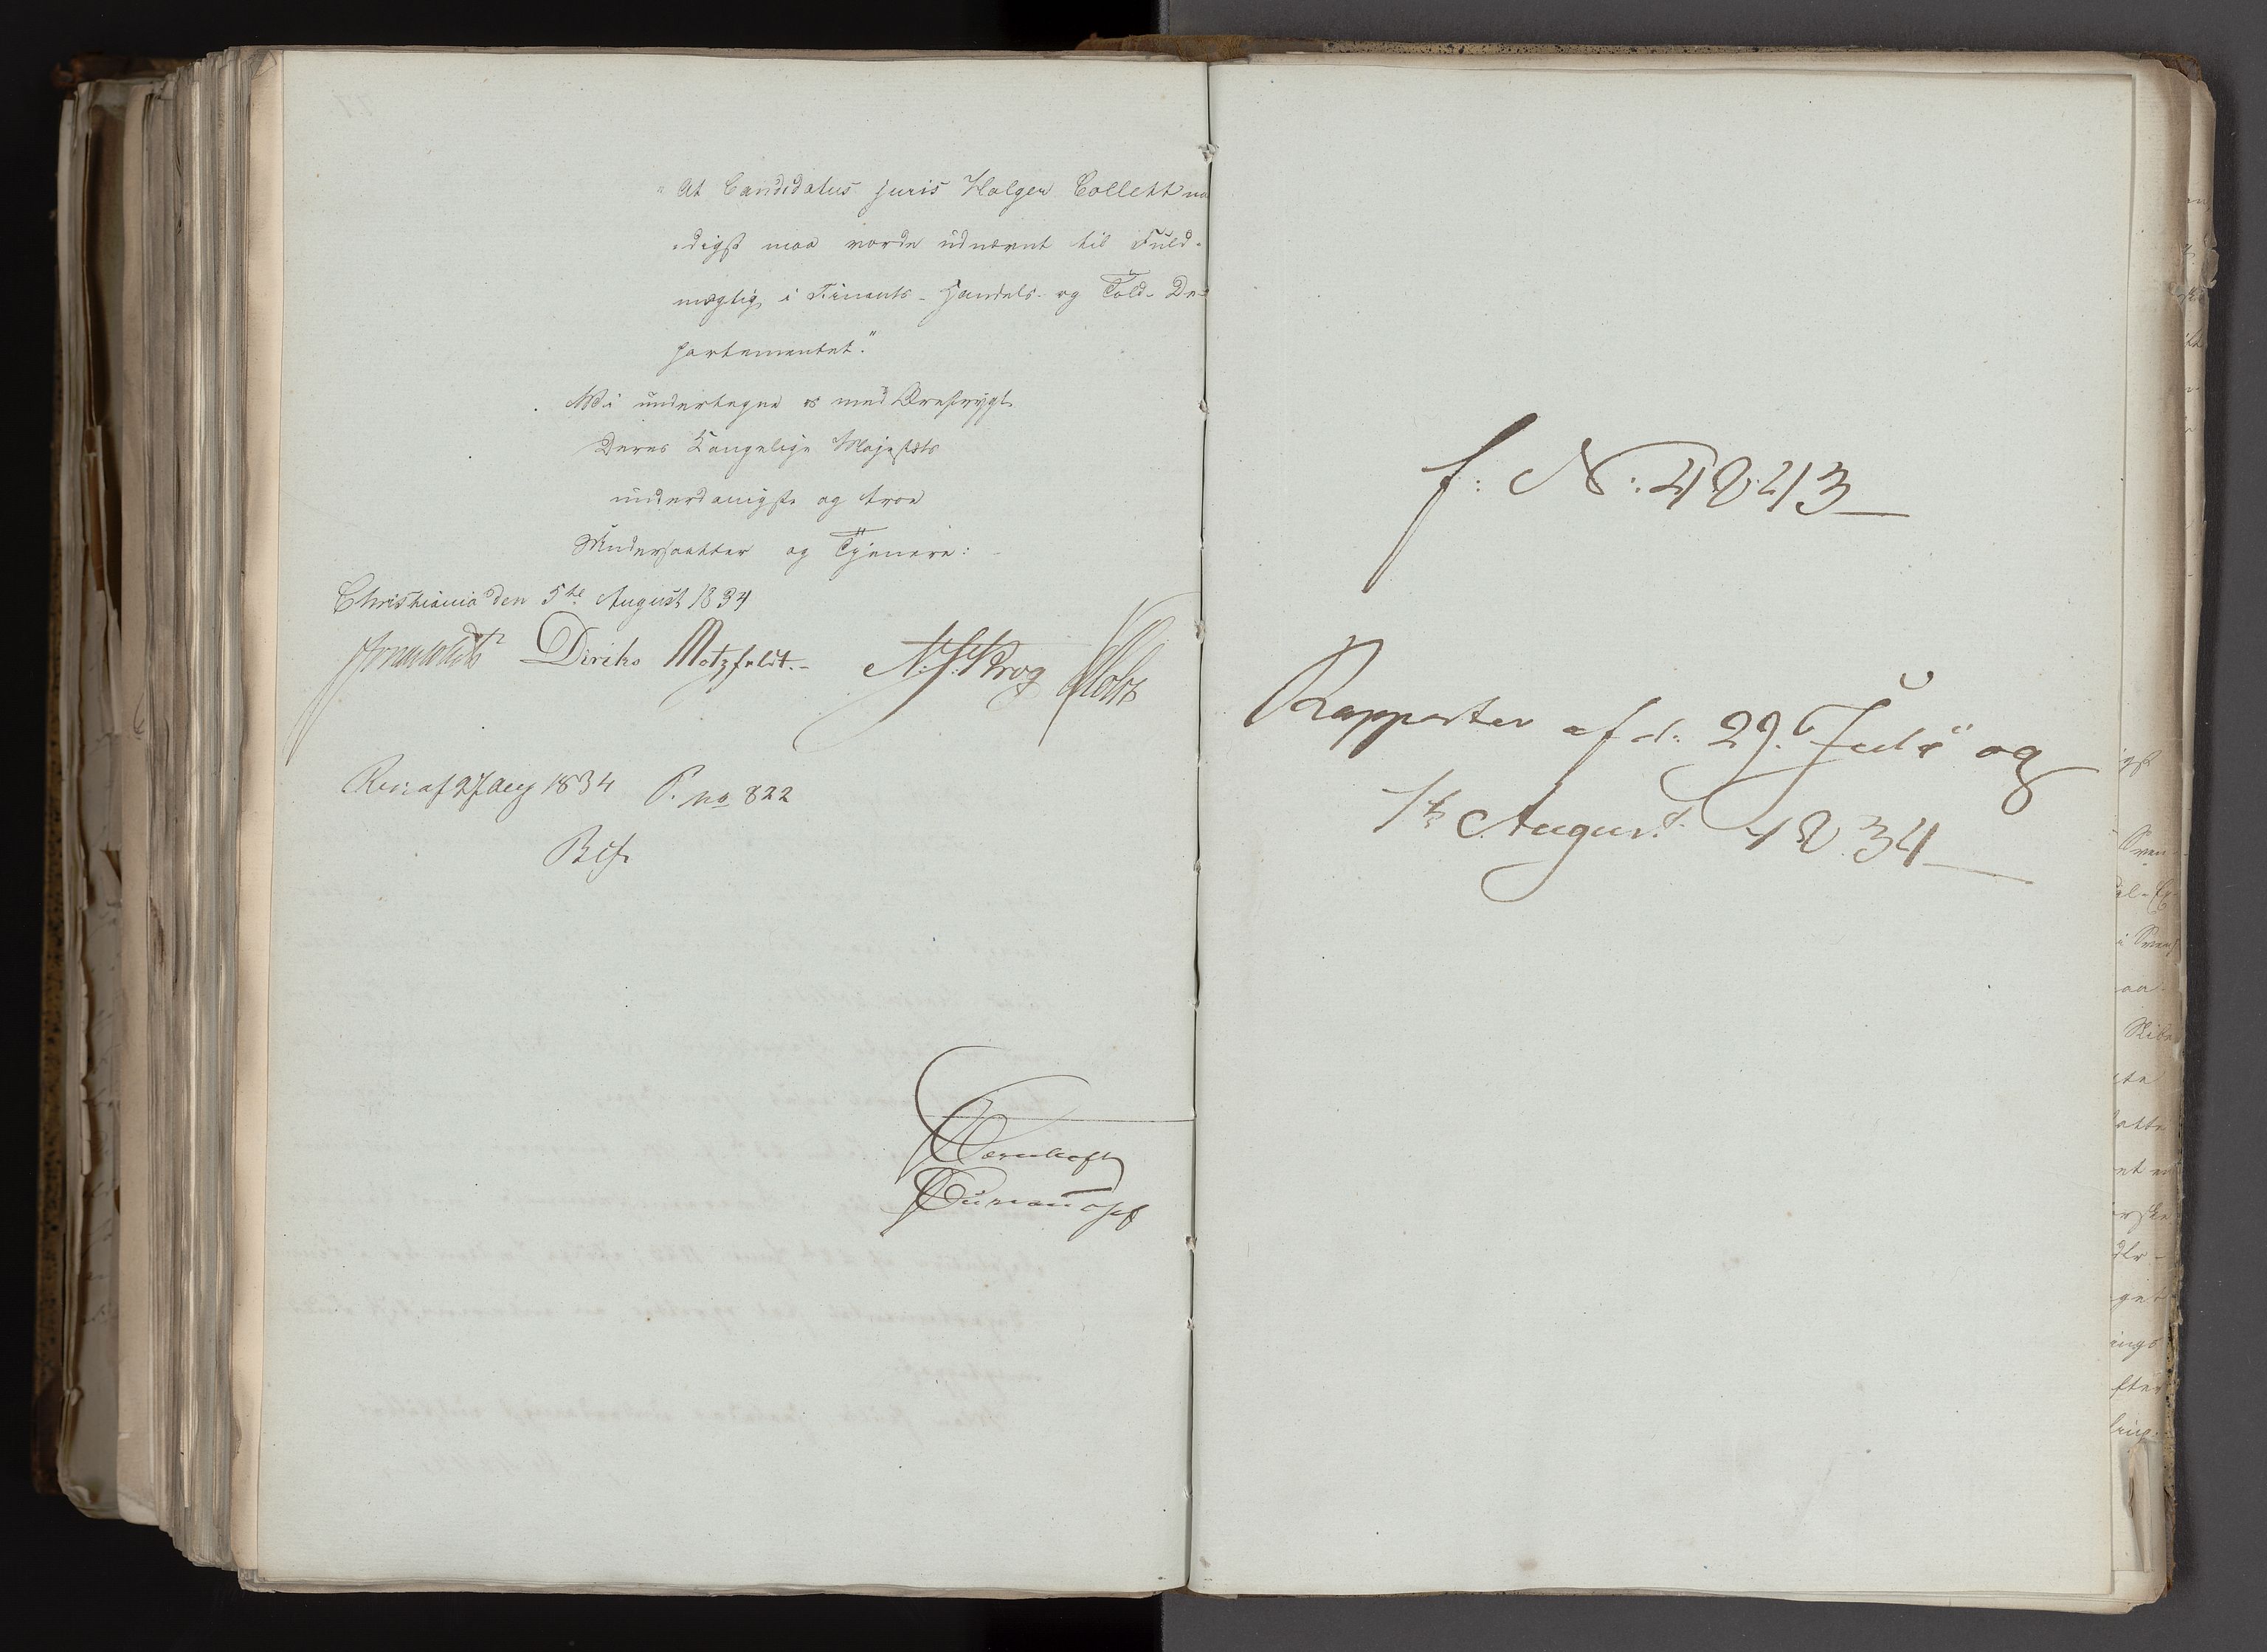 "At Candidatus juris Holger Collett naa
"digst maa vorde udnævnt til Fuld-
mægtig i Finants- Handels- og Told-De-
partementet."
Vi undertegne os med Ærefrygt
Deres Kongelige Majestæts
underdanigste og troe
Undersaatter og Tjenere:
Christiania den 5te August 1834
Diriks Motzfeldt.- Krog Holst
af 27 Aug 1834 P. No 822
Bureauchef
f: N: 4843
Rapporter af d: 29. Juli og
1ste August 1834